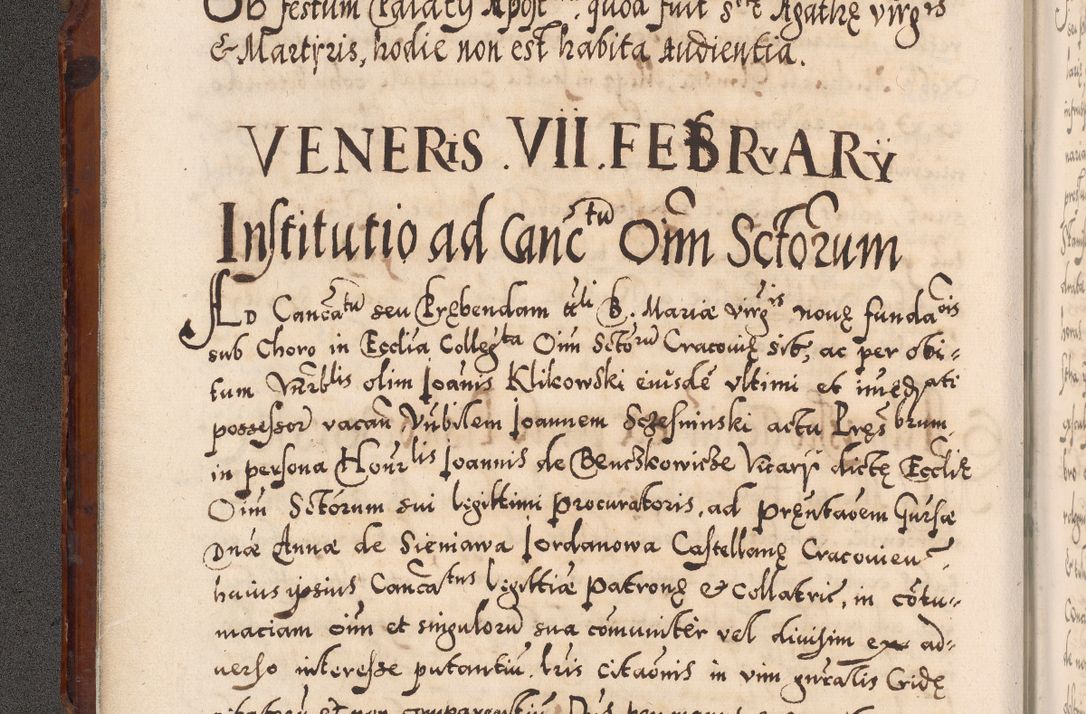 Ob festum Palatÿ Apost quod fuit Sctę Agathę virgis
& Martÿris, hodie non est habita Audientia.
VENERIS . VII . FEBRVARŸ
Institutio ad Canctu Oim Sctorum
AD Cancatu seu Prębendam ttli B. Mariæ virgis nouę fundaois
sub Choro in Ecclia Collegta Oim Sctoru Cracouię sit, ac per obi-
tum Vnrblis olim Joanis Klikowski eiusde vltimi et imedati
possessor vacan Vnbilem Joannem Sczesninski actu Pręsbrum
in persona Honrlis Joannis de Benczkowicze Vicarÿ dictę Ecclię
Oim Sctorum sui legittimi Procuratoris, ad pręntaoem Gursæ
Dnæ Annæ de Sieniawa Jordanowa Castellanę Cracouien,
huius ipsius Cancatus legittiæ Patronę & Collatric, in cotu-
maciam oim et singuloru sua comuniter vel diuisim ex ad-
uerso interesse putantiu. lris citaonis in vim gnralis Cridę
citatoru et non comparentiu